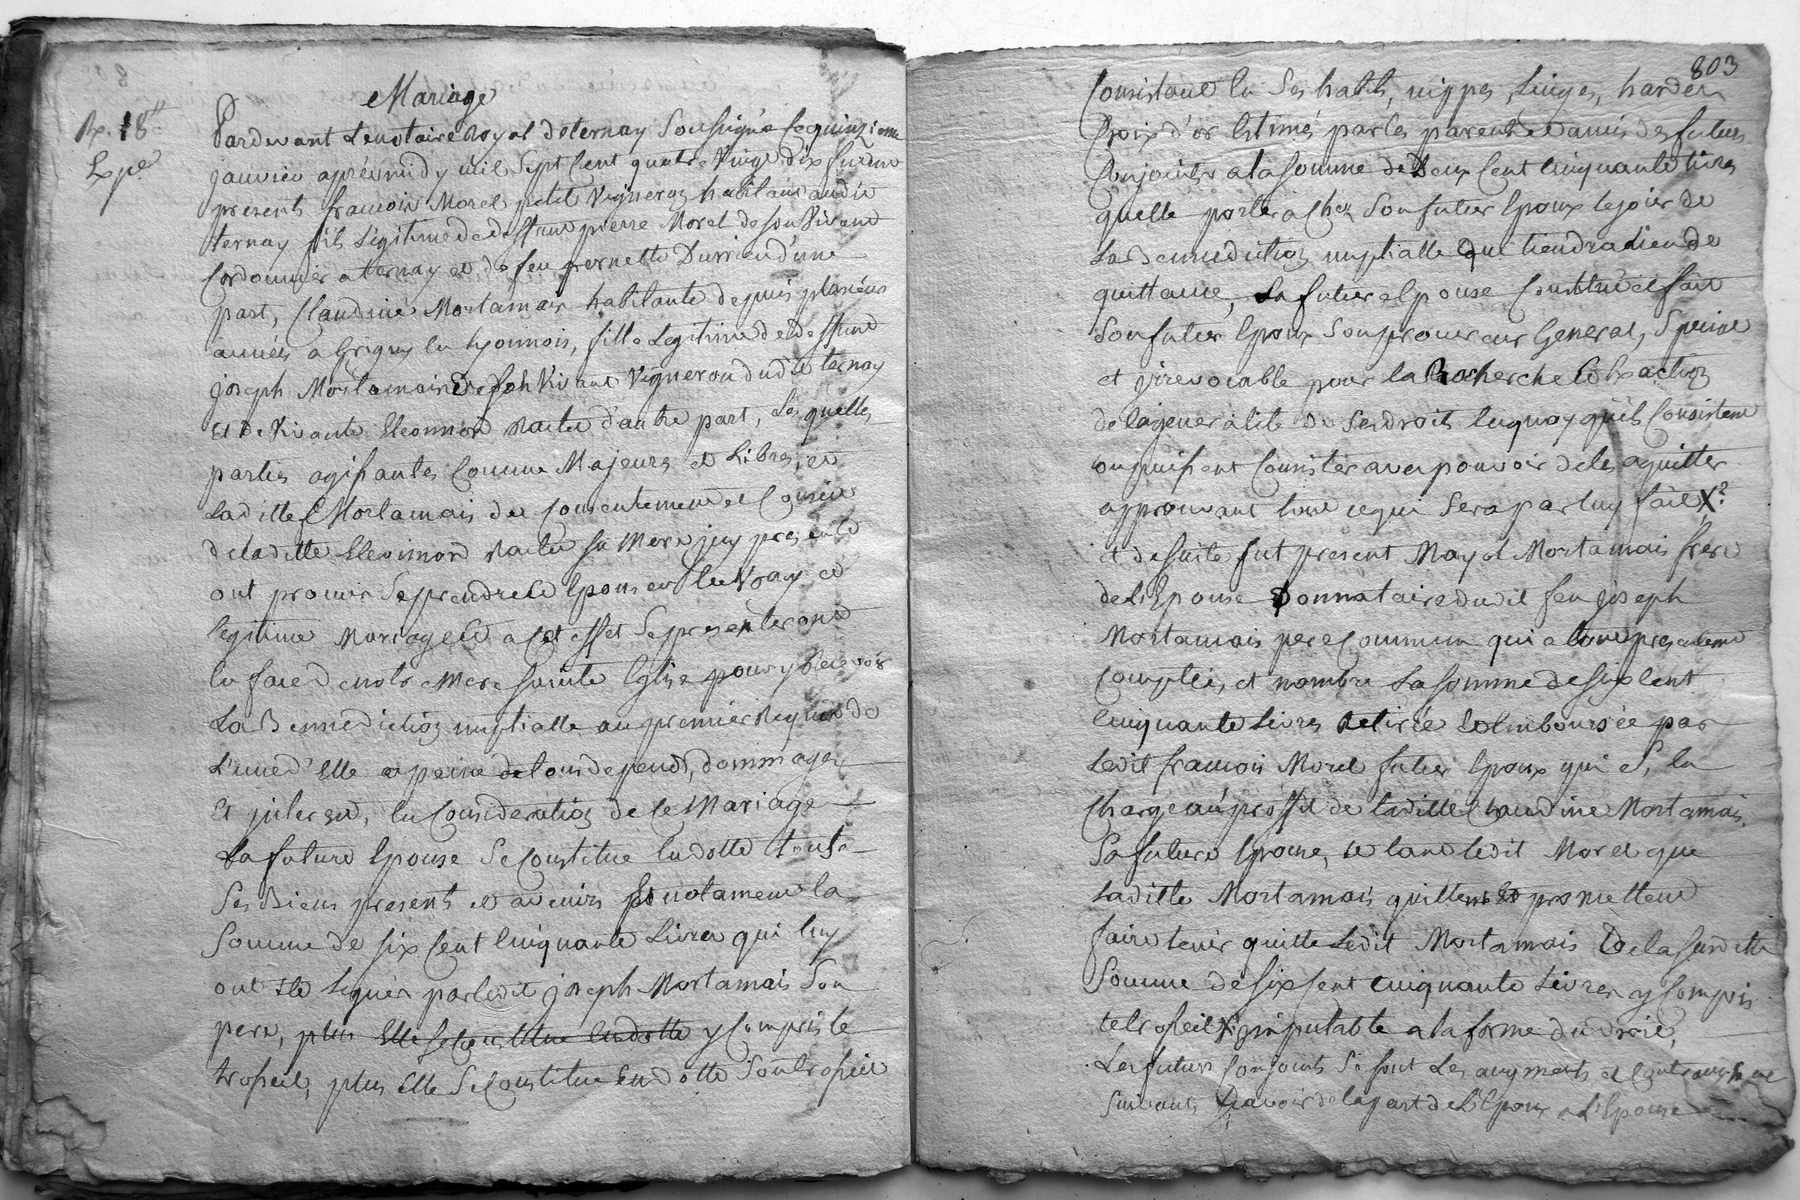 Mariage
R. 18
Expé
Pardevant Lenotaire Royal deternay Soussigné Cequinzieme
janvier aprésmidy mil Sept Cent quatre Vingt dix furent
presents francois Morel petit Vigneron habitant audit
ternay fils Légitime de deffunt pierre Morel de son Vivant
Cordonnier a ternay et de feu pernette Durrieu d'une
part, Claudine Mortamais habitante depuis plusieurs
années a Grigny en Lyonnois, fille Legitime de deffunt
joseph Mortamais de son Vivant Vigneron dudit ternay
et de Vivante Eleonnord d'autre part, Lesquelles
parties agissantes Comme Majeurs et Libres, et
Laditte Mortamais du Consentement et Conseil
de laditte Eleonnord sa Mere icy presente
ont promis Se prendre et Epouser en Vray et
legitime Mariage et a Cet effet Se presenteront
en face de notre Mere Sainte Eglise pour y Recevoir
La Bennediction nuptialle au premier Requis de
L'une d'Elle a peine de tous depends, dommages
et interest, en Consideration de Ce Mariage
La future Epouse Se Constitue en dotte tous
Ses Biens present et avenirs et notament la
Somme de six Cent Cinquante Livres qui luy
ont ete Leguée par ledit joseph Mortamais Son
pere, plus Elle Se Constitue en dotte y Compris le
trosseil, plus Elle Se Constitue en dotte Son trosseil
803
Consistant en Ses habits, nippes, Linges, hardes
Croix d'or Estimés par les parents et amis des futurs
Conjoints a la somme de deux Cent Cinquante livres
quelle porter a chez Son futur Epoux le jour de
La Bennediction nuptialle qui tiendra Lieu de
quittance, La future Epouse Constitue et fait
Son futur Epoux Son procureur General, Special
et jrrevocable pour la Recherche et Exaction
de la generalité de Ses droits en quoy qu'ils Consistent
ou puissent Consister avec pouvoir de les aquitter
approuvant tout ce qui Sera par luy fait X
et de suite fut present Mayol Mortamais frere
de L'Epouse Donnataire dudit feu joseph
Mortamais pere Commun qui a tout presentement
Compté, et nombré La somme de six Cent
Cinquante Livres Retirée et Emboursée par
Ledit francois Morel futur Epoux qui S'en
Charge au proffit de laditte Claudine Mortamais
Sa future Epouse, et tant Ledit Morel que
Laditte Mortamais quittent et promettent
faire tenir quitte Ledit Mortamais de la susditte
Somme de six Cent Cinquante Livres y Compris
le trosseil X imputable a la forme du droit,
Les futurs Conjoints Se font Les augments et
Suivants Savoir de la part de L'Epoux a L'Epouse